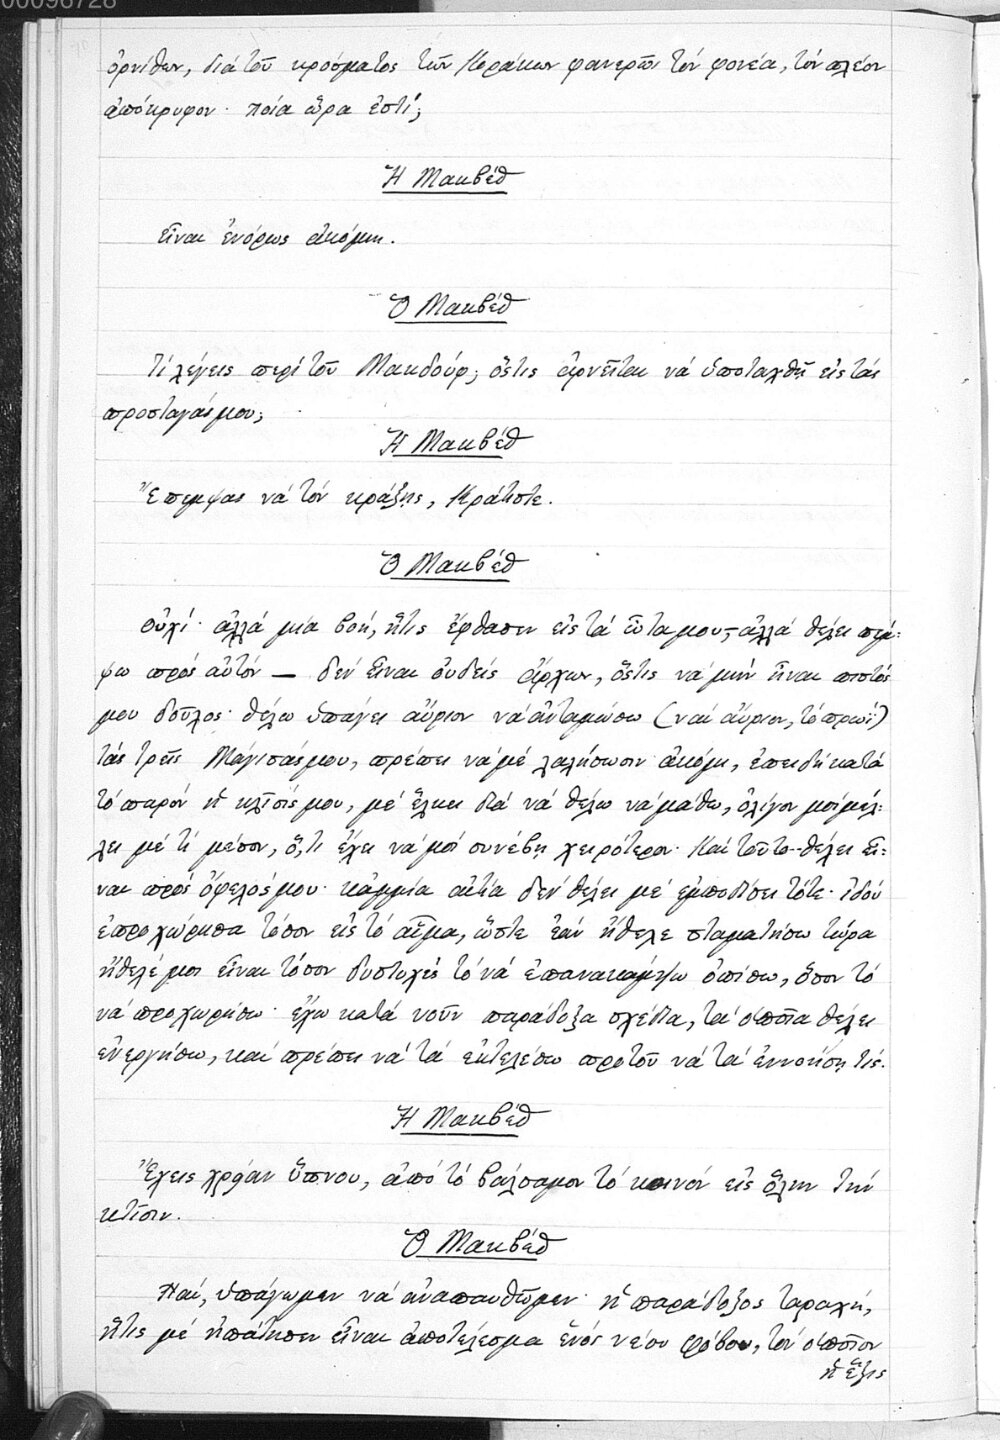 00096728
ὀρνίθων, διὰ τοῦ κρόσματος τῶν Κοράκων φανερῶι τὸν φονέα, τὸν πλέον
ἀπόκρυφον· ποία ὥρα ἐστί;
Ἡ Μακβέθ
Εἶναι ἐνόρως ἀκόμη.
Ὁ Μακβέθ
Τί λέγεις περὶ τοῦ Μακδούφ; ὅστις ἀρνεῖται νὰ ὑποταχθῇ εἰς τὰς
προσταγάς μου;
Ἡ Μακβέθ
Ἔπεμψας νὰ τὸν κράξῃς, Κράτιστε.
Ὁ Μακβέθ
Οὐχί· ἀλλὰ μία βοή, ἥτις ἔφθασεν εἰς τὰ ὦτα μου,- ἀλλὰ θέλει πέμ-
ψω πρὸς αὐτόν — δὲν εἶναι οὐδεὶς ἄρχων, ὅστις νὰ μὴν ἦναι πιστός
μου δοῦλος· θέλω ὑπάγει αὔριον νὰ ἀνταμώσω (ναὶ αὔριον, τὸ πρωΐ)
τὰς τρεῖς Μάγισάς μου, πρέπει νὰ μὲ λαλήσωσιν ἀκόμη, ἐπειδὴ κατὰ
τὸ παρὸν ἡ κλῖσίς μου, μὲ ἕλκει διὰ νὰ θέλω νὰ μάθω, ὀλίγον μοὶ μέλ-
λει μὲ τί μέσον, ὅ,τι ἔχει νὰ μοὶ συνέβῃ χειρότερον· Καὶ τοῦτο θέλει εἶ-
ναι πρὸς ὄφελός μου· καμμία αἰτία δὲν θέλει μὲ ἐμποδίσει τότε· ἰδοὺ
ἐπροχώρησα τόσον εἰς τὸ αἷμα, ὥστε ἐὰν ἤθελε σταματήσω τώρα
ἤθελέ μοι εἶναι τόσον δυστυχὲς τὸ νὰ ἐπανακάμψω ὀπίσω, ὅσον τὸ
νὰ προχωρήσω· ἔχω κατὰ νοῦν παράδοξα σχέδια, τὰ ὁποῖα θέλει
ἐνεργήσω, καὶ πρέπει νὰ τὰ ἐκτελέσω πρὸ τοῦ νὰ τὰ ἐννοήσῃ τίς.
Ἡ Μακβέθ
Ἔχεις χρείαν ὕπνου, ἀπὸ τὸ βάλσαμον τὸ κοινὸν εἰς ὅλην τὴν
κτίσιν.
Ὁ Μακβέθ
Ναί, ὑπάγωμεν νὰ ἀναπαυθῶμεν· ἡ παράδοξος ταραχή,
ἥτις μὲ ἠπάτησεν εἶναι ἀποτέλεσμα ἑνὸς νέου φόβου, τὸν ὁποῖον
ἡ ἕξις